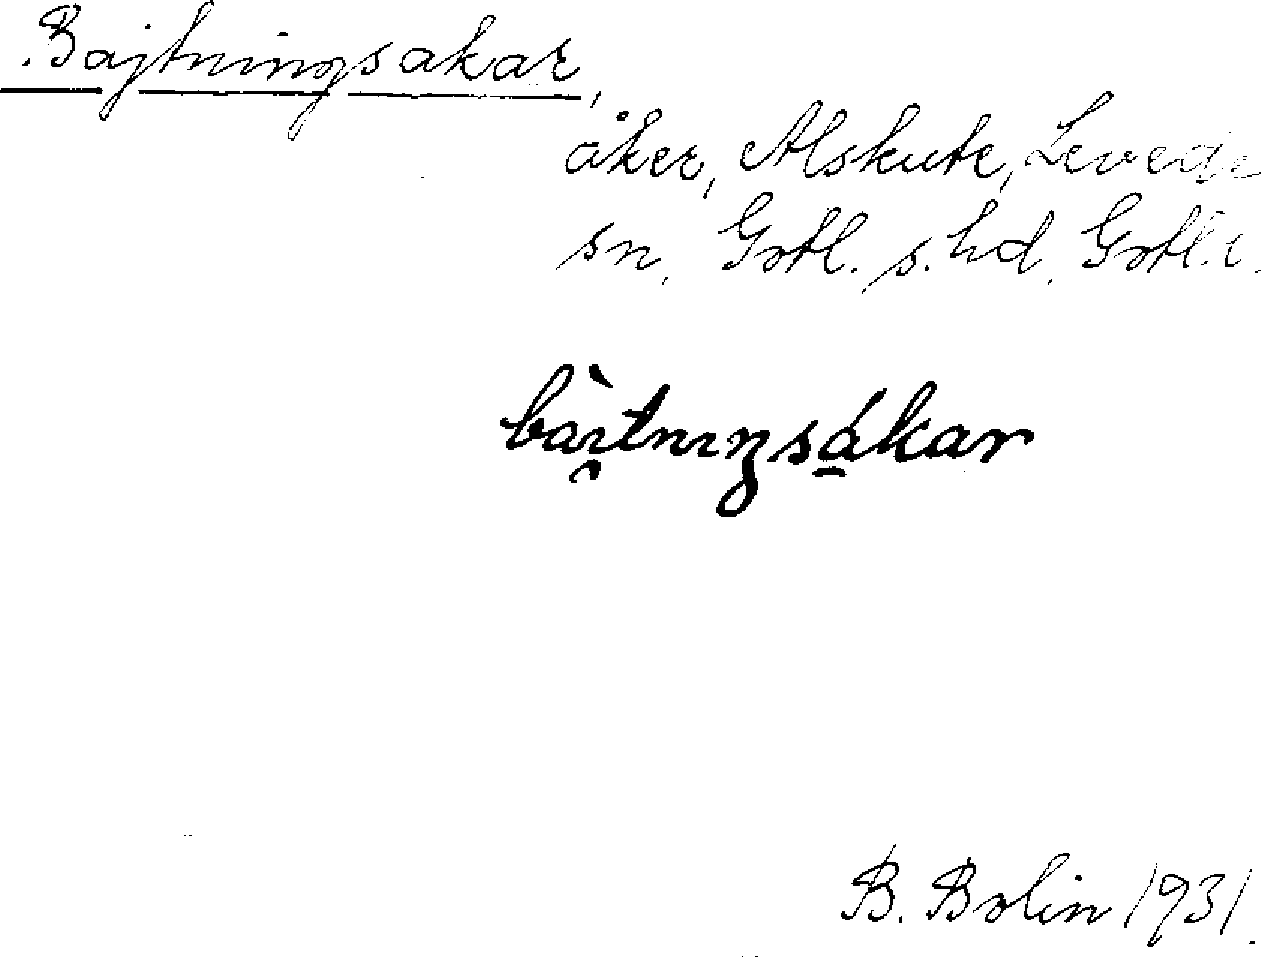 Bajtningsakar,
åker, Alskute, Levede
sn, Gotl. s. hd, Gotl. l.
bàı̯tnıŋsákar
B. Bolin 1931.